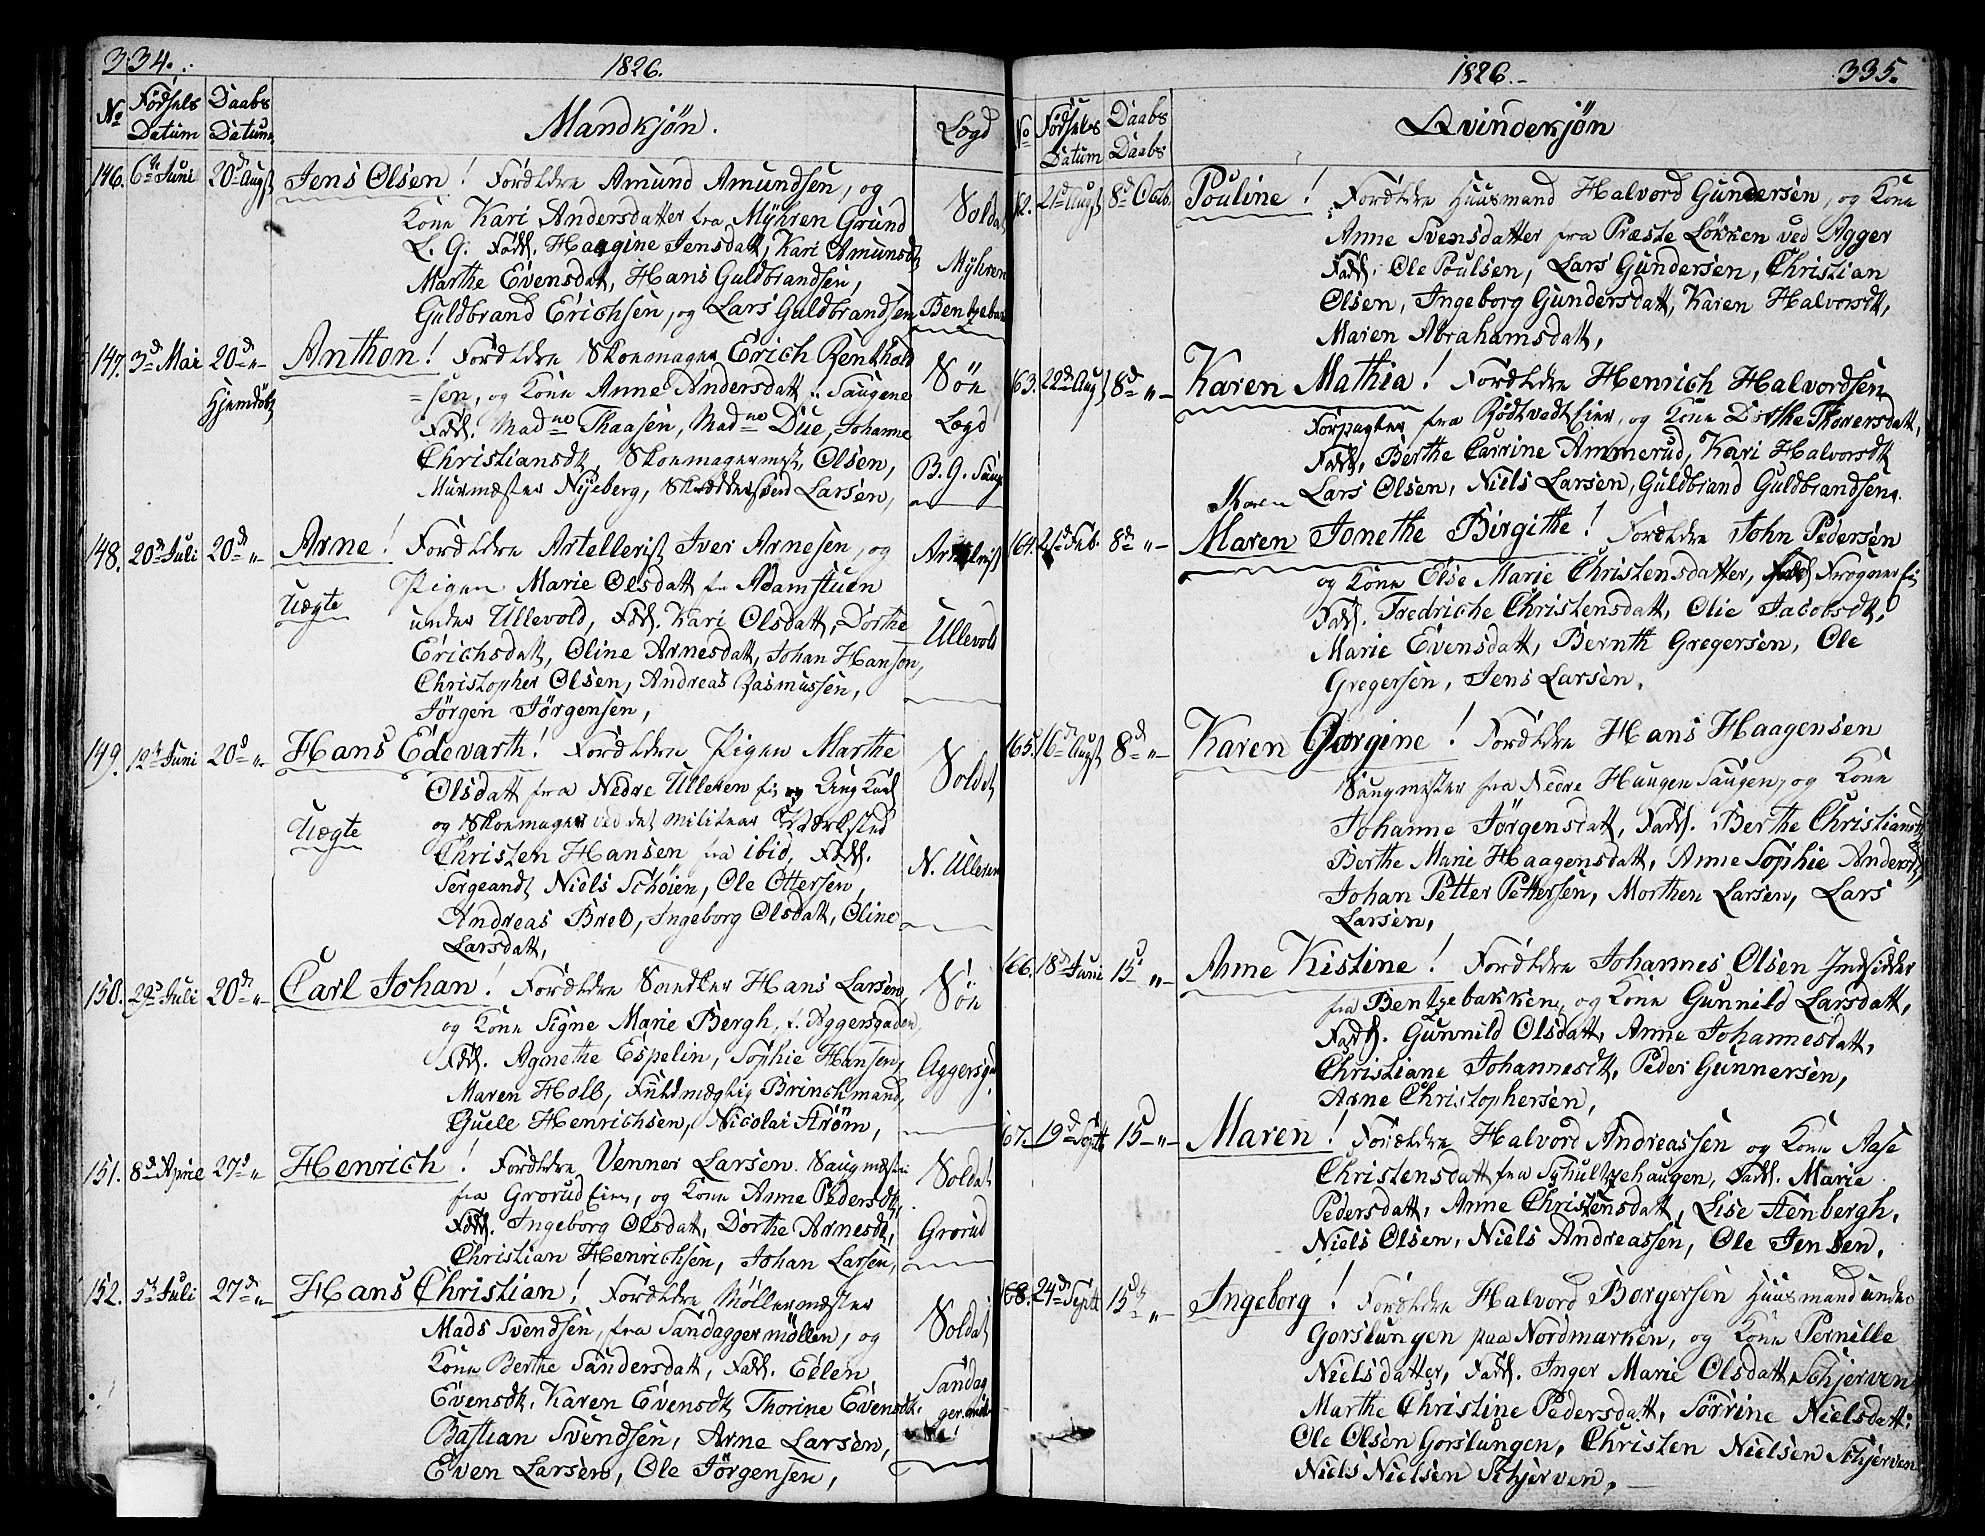 334.
1826.
No Födsels Datum Daabs Datum Mandkjön. Lægd
146. 6te Juni 20d Augst Jens Olsen! Forældre Amund Amundsen, og Soldat
Kone Kari Andersdatter fra Myhren Grund
L. G. Fadd. Haagine Jensdatt, Kari Amunsdt Myhren
Marthe Evensdat, Hans Guldbrandsen,
Guldbrand Erichsen, og Lars Guldbrandsen Bentzebak
147. 3d Mai 20d „ Hjemdöbt Anthon! Forældre Skoemager Erich Benthold Söe
=sen, og Kone Anne Andersdatt Saugene Lægd
Fadd. Madme Thaasen, Madme Due, Johanne
Christiansdt, Skoemagermest. Olsen, B. G. Saug
Murmæster Nyeberg, Skrædder Larsen,
148. 20d Juli 20d „ Arne! Forældre Artellerist Iver Arnesen, og Artelrist
Uægte Pigen Marie Olsdatt fra Adamstuen
under Ullevold, Fadd. Kari Olsdatt, Dorthe Ullevold
Erichsdatt, Oline Arnesdatt, Johan Hansen,
Christopher Olsen, Andreas Rasmussen,
Jörgen Jörgensen,
149. 12te Juni 20d „ Hans Edevarth! Forældre Pigen Marthe Soldat
Olsdatt fra Nedre Ulleren Eie og Ung Karl
Uægte og Skoemager ved det militaer Værksted
Christen Hansen fra ibid, Fadd. N. Ulleren
Sergeandt Niels Schöien, Ole Ottersen,
Andreas Bred, Ingeborg Olsdatt, Oline
Larsdatt,
150. 29d Juli 20d „ Carl Johan! Forældre Snedker Hans Larsen Söe
og Kone Signe Marie Bergh, f. Aggersgaden,
Fadd. Agnethe Espelin, Sophie Hansen, Aggersgd.
Maren Holb, Fuldmægtig Brinchmand,
Guele Henrichsen, Nicolai Ström,
151. 8d Aprie 27d „ Henrich! Forældre Venner Larsen Saugmester Soldat
fra Grorud Eier, og Kone Anne Pedersdt,
Fadd. Ingeborg Olsdatt, Dorthe Arnesdt, Grorud
Christian Henrichsen, Johan Larsen,
152. 5te Juli 27d „ Hans Christian! Forældre Möllermæster Soldat
Mads Svendsen, fra Sandaggermöllen, og
Kone Berthe Sandersdatt, Fadd. Ellen Sandag
Evensdt, Karen Evensdt, Thorine Evensdt, germöl
Bastian Svendsen, Arne Larsen,
Even Larsen, Ole Jörgensen,
1826.
335.
No Födsels Datum Daabs Daabs Qvindekjön
62. 21d Augst 8d Octb. Pouline! Forældre Huusmand Halvord Gundersen, og Kone
Anne Svensdatter fra Præste Lökken ved Agger
Fadd. Ole Poulsen, Lars Gundersen, Christian
Olsen, Ingeborg Gundersdatt, Karen Halvorsdt,
Maren Abrahamsdatt,
63. 22d Augst 8d „ Karen Mathia! Forældre Henrich Halvordsen
Forpagter fra Rödtvedt Eier, og Kone Dorthe Thorersdatt,
Fadd, Berthe Carrine Ammerud, Kari Halvorsdt
Lars Olsen, Niels Larsen, Guldbrand Guldbrandsen.
164. 21d Feb. 8d „ Maren Jonethe Birgithe! Forældre John Pedersen
og Kone Else Marie Christensdatter, Frogner Ei
Fadd. Fredriche Christensdatt, Olie Jacobsdt,
Marie Evensdatt, Bernth Gregersen, Ole
Gregersen, Jens Larsen,
165. 16d Augst 8d „ Karen Gorgine! Forældre Hans Haagensen
Saugmester fra Nedre Haugen Saugen, og Kone
Johanne Jörgensdatt, Fadd. Berthe Christiansdt
Berthe Marie Haagensdatt, Anne Sophie Andersdt,
Johan Petter Pettersen, Morthen Larsen, Lars
Larsen,
166. 18d Juni 15d „ Anne Kistine! Forældre Johannes Olsen Indsidder
fra Bentzebakken, og Kone Gunnild Larsdatt,
Fadd. Gunnild Olsdatt, Anne Johannesdatt,
Christiane Johannesdt, Peder Gunnersen,
Arne Christophersen,
67. 19d Septt 15 „ Maren! Forældre Halvord Andreassen og Kone Aase
Christensdatt fra Schultzehaugen, Fadd. Marie
Pedersdatt, Anne Christensdatt, Lise Stenbergh,
Niels Olsen, Niels Andreassen, Ole Jensen.
168. 24d Septt 15d „ Ingeborg! Forældre Halvord Borgersen Huusmand under
Gorslungen paa Nordmarken, og Kone Pernille
Nielsdatter, Fadd. Inger Marie Olsdatt, Schjerven
Marthe Christine Pedersdatt, Sörrine Nielsdatt:
Ole Olsen Gorslungen, Christen Nielsen Schjerven
Niels Nielsen Schjerven.